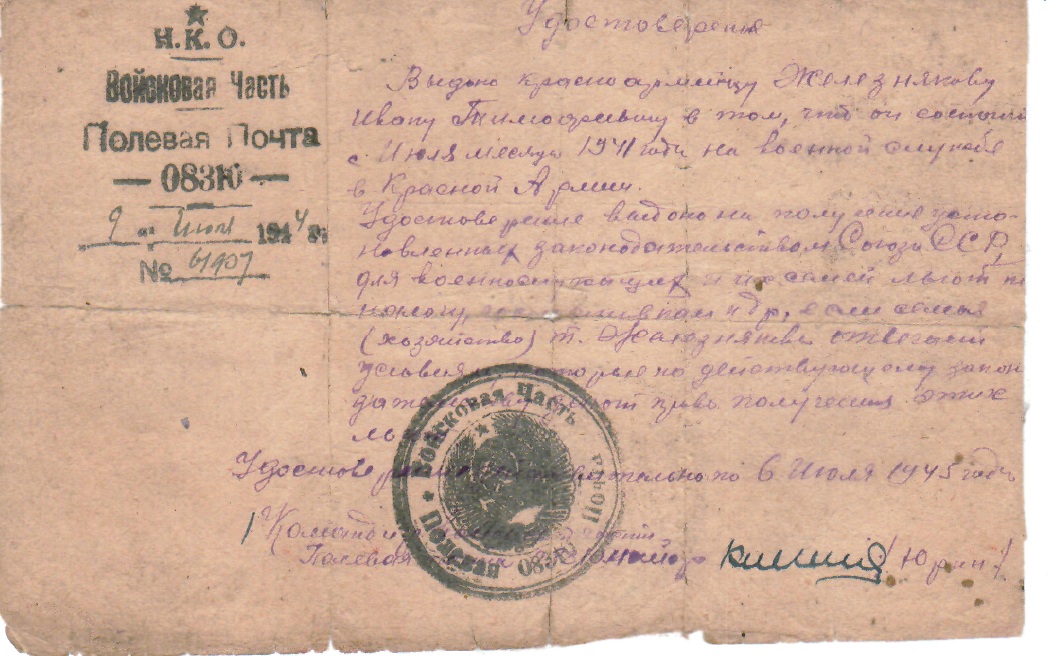 Н.К.О.
Войсковая Часть
Полевая Почта
— 08310 —
9 " Июля 1944 г.
№ 61907
Удостоверение
Выдано красноармейцу Железнякову
Ивану Тимофеевичу в том, что он состоит
с Июля месяца 1941 года на военной службе
в Красной Армии.
Удостоверение выдано на получение уста-
новленных законодательством Союза ССР,
для военнослужащих и их семей льгот по
налогу, поставкам и др, если семья
(хозяйство) т. Железнякова отвечает
условиям, которые по действующему закон
дают право получения этих
Удостоверение действительно по 6 Июля 1945 года
Командир части
Полевая майор /Юрин/
Войсковая Часть
Полевая Почта 08310